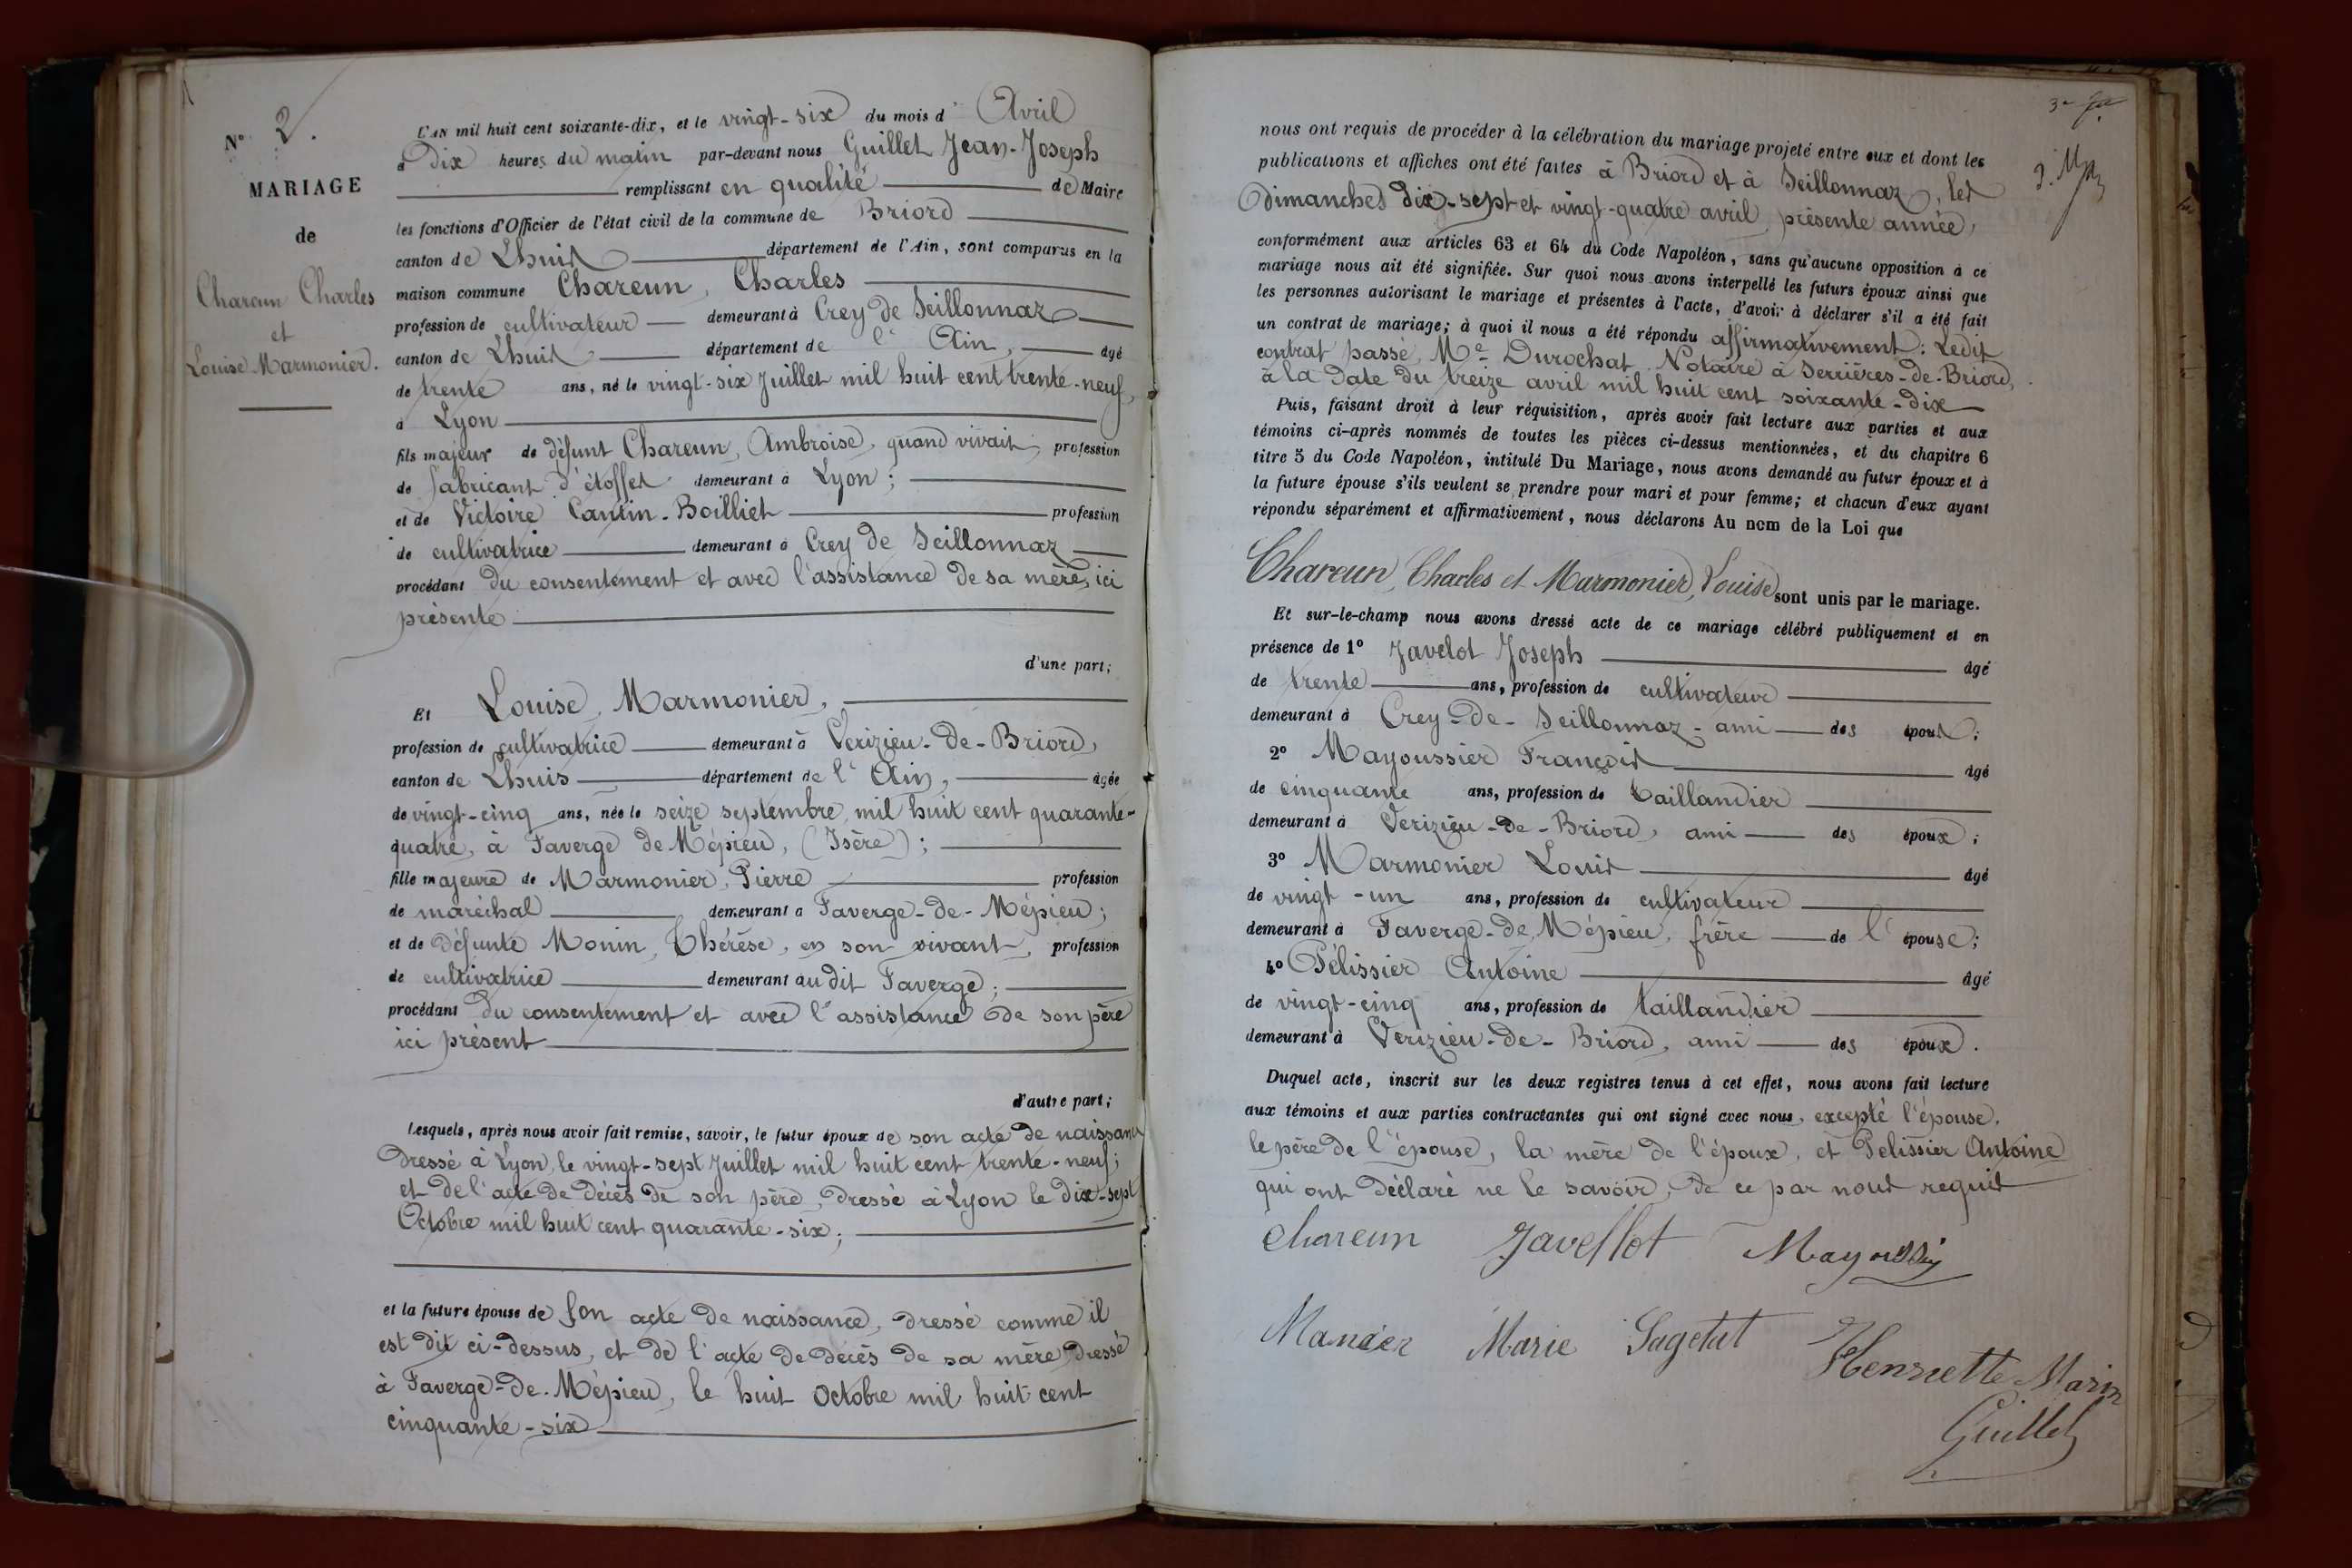 N° 2.
MARIAGE
de
Chareun Charles
et
Louise Marmonier.
L'AN mil huit cent soixante-dix, et le vingt-six du mois d' Avril
à Dix heures du matin par-devant nous Guillet Jean-Joseph
remplissant en qualité de Maire
les fonctions d'Officier de l'état civil de la commune de Briord
canton de Lhuis département de l'Ain, sont comparus en la
maison commune Chareun, Charles
profession de cultivateur demeurant à Crey de Seillonnaz
canton de Lhuis département de l' Ain, âgé
de trente ans, né le vingt-six Juillet mil huit cent trente-neuf,
à Lyon
fils majeur de défunt Chareun, Ambroise, quand vivait, profession
de fabricant d'étoffes demeurant à Lyon;
et de Victoire Cantin-Boilliet profession
de cultivatrice demeurant à Crey de Seillonnaz
procédant du consentement et avec l'assistance de sa mère, ici
présente
d'une part;
Et Louise, Marmonier,
profession de cultivatrice demeurant à Verizieu-de-Briord,
canton de Lhuis département de l' Ain, âgée
de vingt-cinq ans, née le seize septembre, mil huit cent quarante-
quatre, à Faverge de Mépieu, (Isère);
fille majeure de Marmonier, Pierre profession
de maréchal demeurant à Faverge-de-Mépieu;
et de défunte Monin, Thérèse, en son vivant, profession
de cultivatrice demeurant au dit Faverge;
procédant du consentement et avec l'assistance de son père
ici présent
d'autre part;
Lesquels, après nous avoir fait remise, savoir, le futur époux de son acte de naissance
dressé à Lyon, le vingt-sept Juillet mil huit cent trente-neuf;
et de l'acte de décès de son père, dressé à Lyon le dix-sept
Octobre mil huit cent quarante-six;
et la future épouse de son acte de naissance, dressé comme il
est dit ci-dessus, et de l'acte de décès de sa mère dressé
à Faverge-de-Mépieu, le huit Octobre mil huit cent
cinquante-six
nous ont requis de procéder à la célébration du mariage projeté entre eux et dont les
publications et affiches ont été faites à Briord et à Seillonnaz, les
dimanches dix-sept et vingt-quatre avril, présente année,
conformément aux articles 63 et 64 du Code Napoléon, sans qu'aucune opposition à ce
mariage nous ait été signifiée. Sur quoi nous avons interpellé les futurs époux ainsi que
les personnes autorisant le mariage et présentes à l'acte, d'avoir à déclarer s'il a été fait
un contrat de mariage; à quoi il nous a été répondu affirmativement: Ledit
contrat passé, Me Durochat Notaire à Serrières-de-Briord,
à la date du treize avril mil huit cent soixante-dix
Puis, faisant droit à leur réquisition, après avoir fait lecture aux parties et aux
témoins ci-après nommés de toutes les pièces ci-dessus mentionnées, et du chapitre 6
titre 5 du Code Napoléon, intitulé Du Mariage, nous avons demandé au futur époux et à
la future épouse s'ils veulent se prendre pour mari et pour femme; et chacun d'eux ayant
répondu séparément et affirmativement, nous déclarons Au nom de la Loi que
Chareun, Charles et Marmonier, Louise sont unis par le mariage.
Et sur-le-champ nous avons dressé acte de ce mariage célébré publiquement et en
présence de 1° Javelot Joseph âgé
de trente ans, profession de cultivateur
demeurant à Crey-de-Seillonnaz-ami des époux;
2° Mayoussier François âgé
de cinquante ans, profession de taillandier
demeurant à Verizieu-de-Briord, ami des époux;
3° Marmonier Louis âgé
de vingt-un ans, profession de cultivateur
demeurant à Faverge-de-Mépieu, frère de l'épouse;
4° Pélissier Antoine âgé
de vingt-cinq ans, profession de taillandier
demeurant à Verizieu-de-Briord, ami des époux.
Duquel acte, inscrit sur les deux registres tenus à cet effet, nous avons fait lecture
aux témoins et aux parties contractantes qui ont signé avec nous, excepté l'épouse,
le père de l'épouse, la mère de l'époux, et Pelissier Antoine
qui ont déclaré ne le savoir, de ce par nous requis
Chareun Javellot
Marie Sagetat Henriette Marin
Guillet